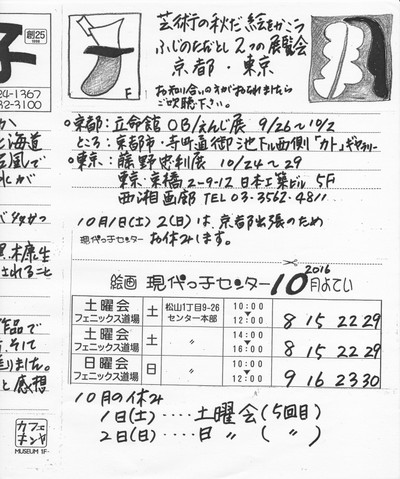 芸術の秋だ絵をかこう
ふじのただとし2つの展覧会
京都・東京
お知り合いの方がおられましたら
ご吹聴下さい。
F
子
創25
24-1367
32-3100
○京都:立命館OB/えんじ展 9/26~10/2
ところ:京都市・寺町通御池下ル西側「カト」ギャラリー
○東京:藤野忠利展 10/24~29
東京・京橋2-9-12 日本工築ビル 5F
西湘画廊 TEL 03-3562-4811
10月1日(土)2(日)は、京都出張のため
現代っ子センター お休みします。
北海道
台風で
作品で
そして
と感想
カフェ
MUSEUM 1F
絵画 現代っ子センター 10月よてい
2016
土曜会 フェニックス道場 土 松山1丁目9-26 センター本部 10:00 ▼ 12:00 8 15 22 29
土曜会 フェニックス道場 土 〃 14:00 ▼ 16:00 8 15 22 29
日曜会 フェニックス道場 日 〃 10:00 ▼ 12:00 9 16 23 30
10月の休み
1日(土)‥‥土曜会(5回目)
2日(日)‥‥日〃(〃)